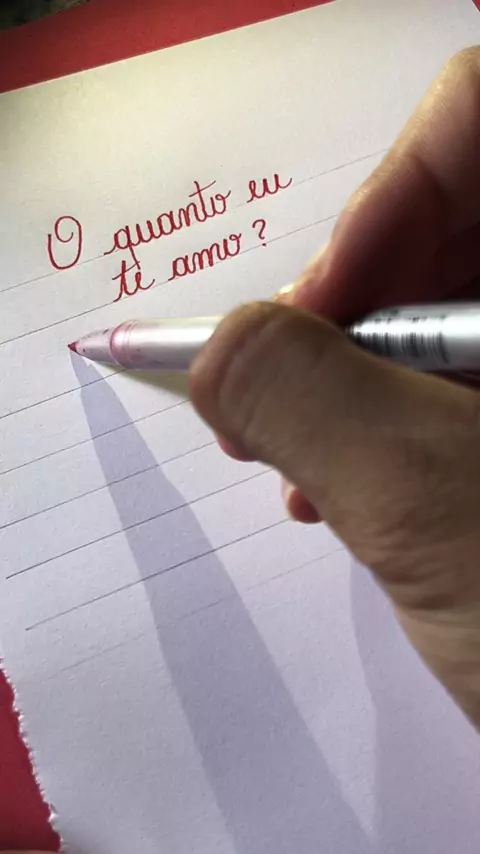 O quanto eu
ti amo?